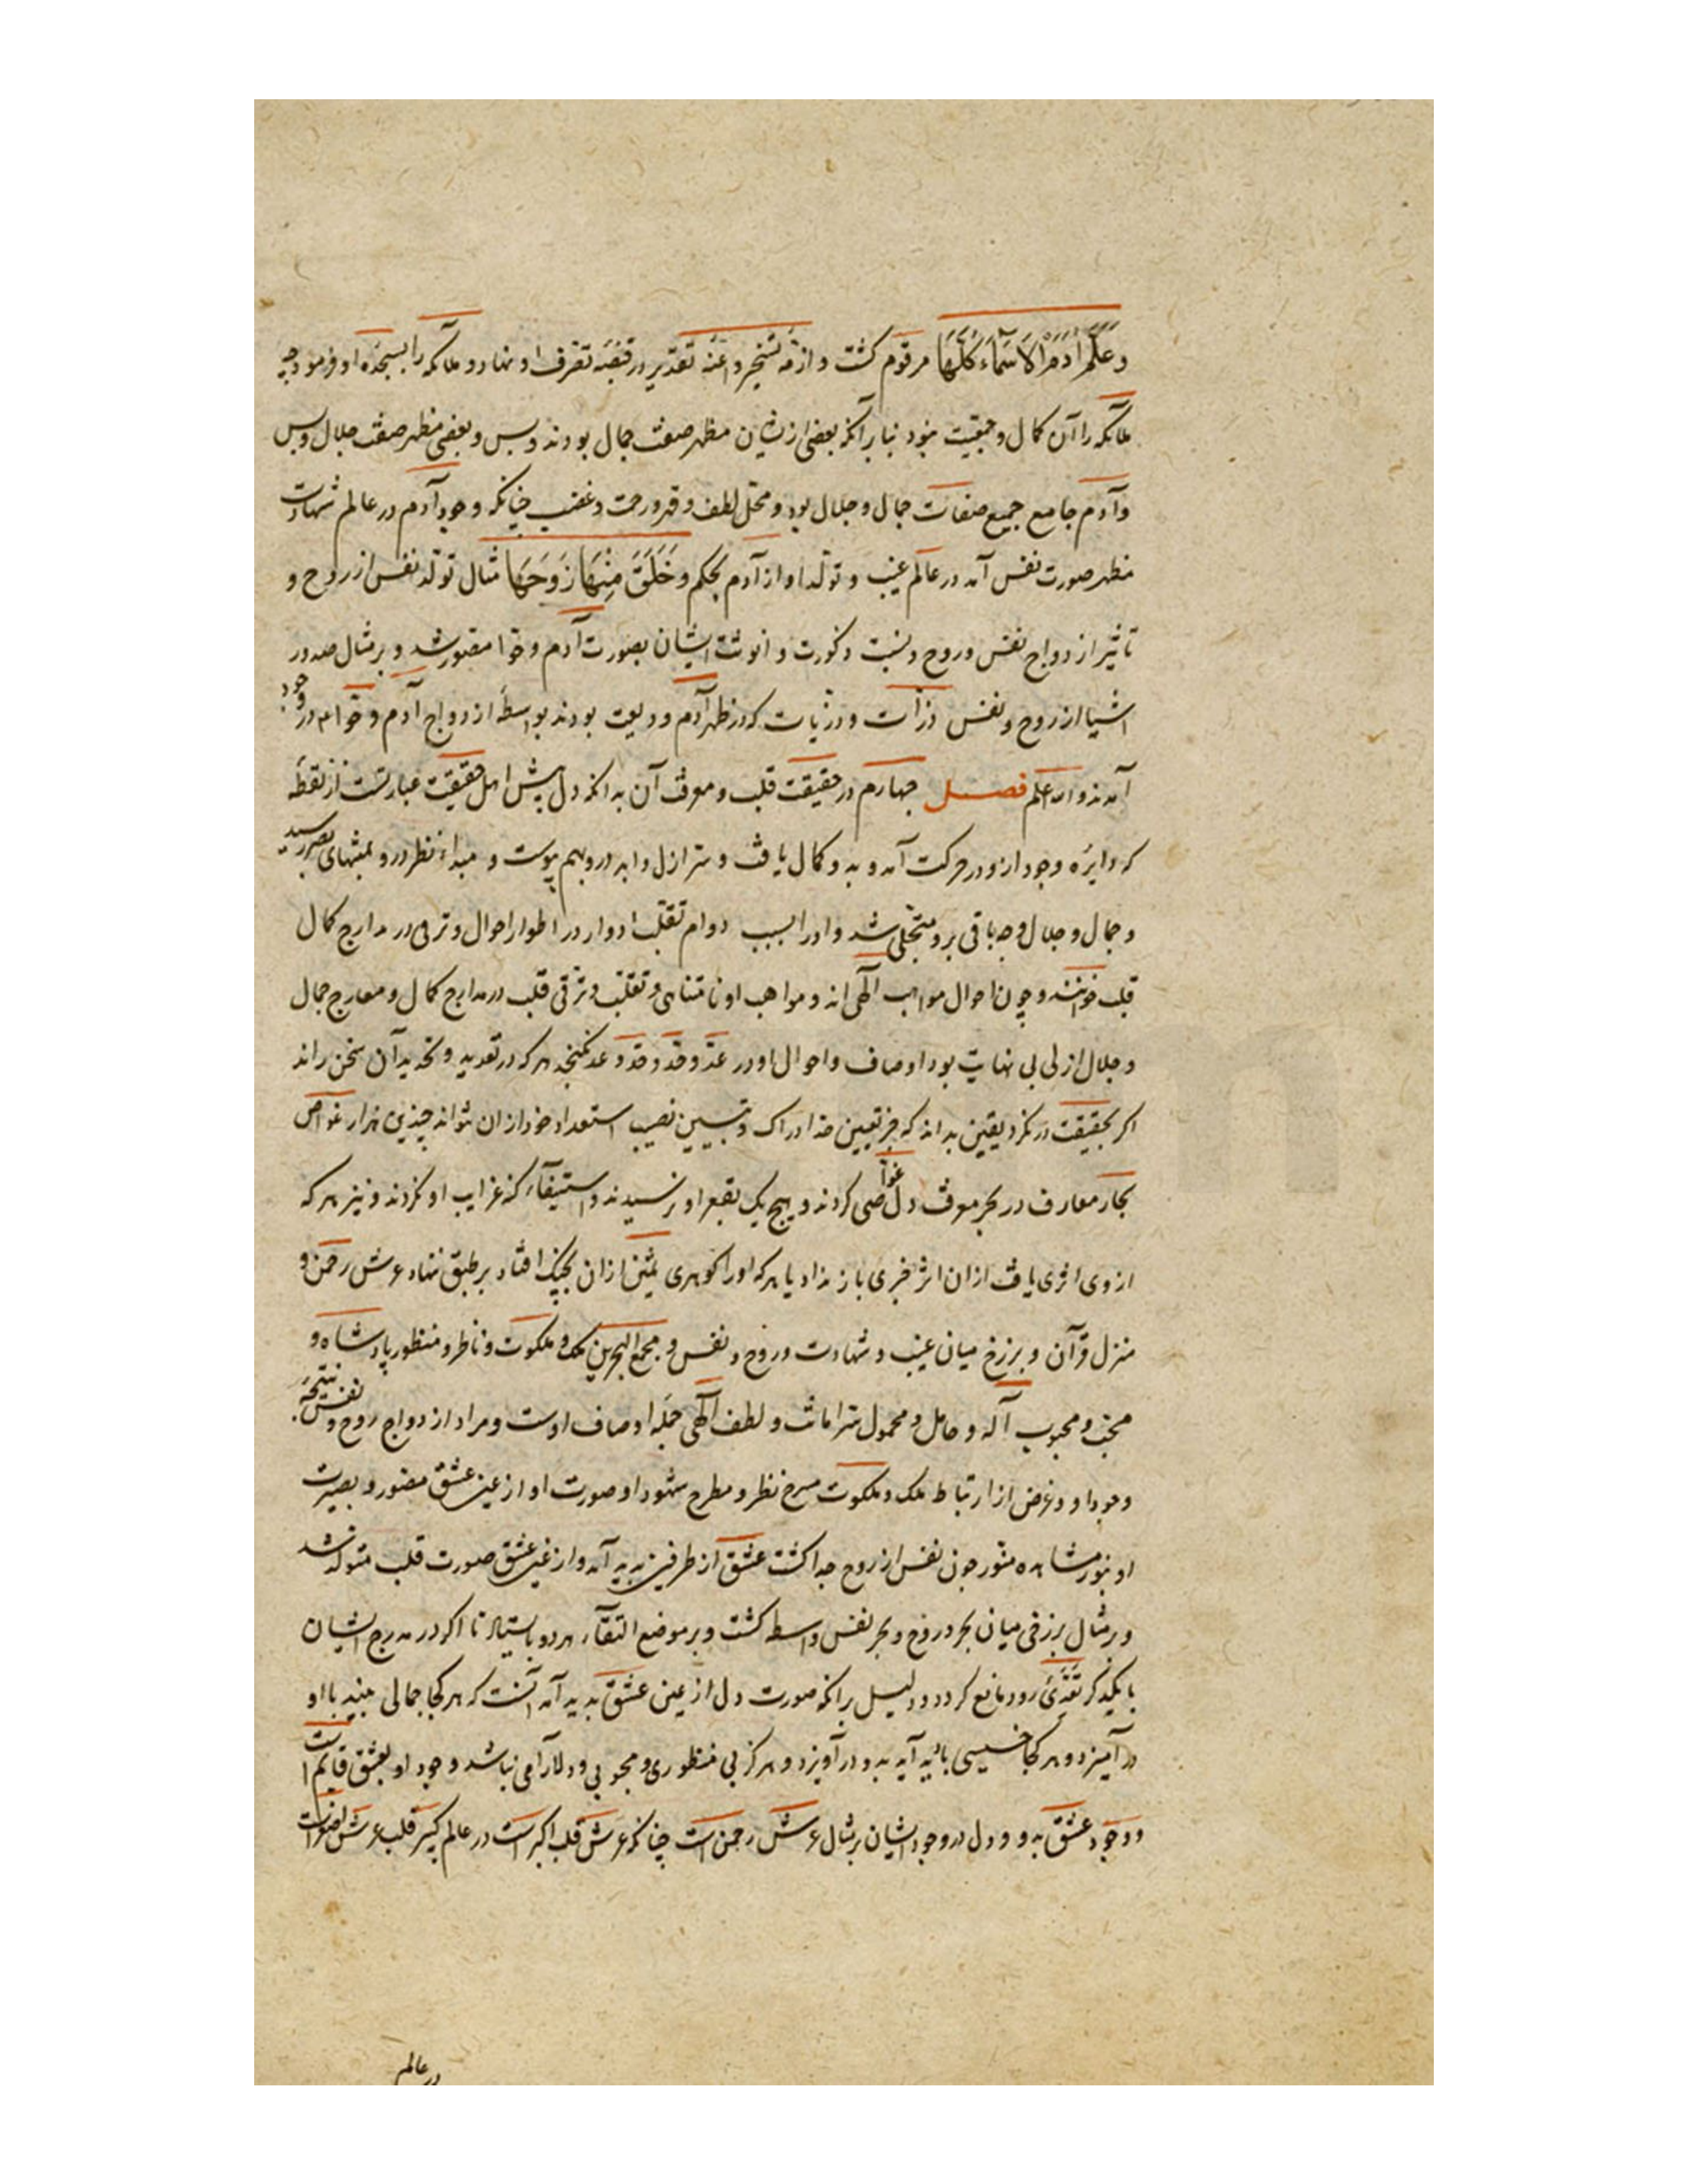 وَعَلَّمَ آدَمَ الْاَسْمَآءَ كُلَّهَا مرقوم كشت و ازمّه تسخير و اعنّه تقدير در قبضه تصرف او نهاد و ملائكه را بسجده او فرمود چه
ملائكه را آن كمال و جمعيت نبود بنابر آنكه بعضى ازيشان مظهر صفت جمال بودند و بس و بعضى مظهر صفت جلال و بس
و آدم جامع جميع صفات جمال و جلال بود و محل لطف و قهر و رحمت و غضب چنانكه وجود آدم در عالم شهادت
مظهر صورت نفس آمد در عالم غيب و تولد او از آدم بحكم وَخَلَقَ مِنْهَا زَوْجَهَا مثال تولد نفس از روح و
تاثير ازدواج نفس و روح و نسبت ذكورت و انوثت ايشان بصورت آدم و حوا مقصور شد و بر مثال صدور
اشيا از روح و نفس ذرّات و ذرّيات كه در ظهر آدم وديعت بودند بواسطهٔ ازدواج آدم و حوّا در وجود
آمدند والله اعلم فصل چهارم در حقيقت قلب و معرفت آن بدانكه دل پيش اهل حقيقت عبارتست از نقطهٔ
كه دايره وجود ازو در حركت آمد و بدو كمال يافت و سرّ ازل و ابد درو بهم پيوست و مبداء نظر درو بمنتهاى بصر رسيد
و جمال و جلال وجه باقى برو متجلّى شد و او را بسبب دوام تقلّب ادوار در اطوار احوال و ترقى در مدارج كمال
قلب خوانند و چون احوال مواهب الٓهى اند و مواهب او نامتناهى و تقلّب و ترقّى قلب در مدارج كمال و معارج جمال
و جلال ازلى بى نهايت بود اوصاف و احوال او در عدّ و حدّ و حدّ و عد نكنجد هر كه در تعديد و تحديد آن سخن راند
اكر بحقيقت درنكرد يقين بداند كه جز تعيين حد ادراك و تبيين نصيب استعداد خود ازان نتواند چندين هزار غواص
بحار معارف در بحر معرفت دل غواصى كردند و هيچ يك بقعر او نرسيدند و استيفآء كنه غرايب او نكردند و نيز هر كه
از وى اثرى يافت ازان اثر خبرى باز نداد يا هر كه او را كوهرى ثمين ازان بچنك افتاد بر طبق نهاد عرش رحمن و
منزل قرآن و برزخ ميان غيب و شهادت و روح و نفس و مجمع البحرين ملك و ملكوت و ناظر و منظور پادشاه و
محبّ و محبوب آله و حامل و محمول سرّ امانت و لطف الٓهى جمله اوصاف اوست و مراد از ازدواج روح و نفس نتيجهٔ
وجود او و غرض از ارتباط ملك و ملكوت مسرح نظر و مطرح شهود او صورت او از عين عشق مصوّر و بصيرت
او بنور مشاهده منوّر چون نفس از روح جدا كشت عشق از طرفين پديد آمد و از عين عشق صورت قلب متولّد شد
و بر مثال برزخى ميان بحر روح و بحر نفس واسطه كشت و بر موضع التقآء هر دو بايستاد تا اكر در مدرج ايشان
با يكديكر تعدّئ رود مانع كردد و دليل برانكه صورت دل از عين عشق پديد آمد آنست كه هر كجا جمالى بيند با او
درآميزد و هر كجا حسنى بابد آيد بدو درآويزد و هركز بى منظورى و محبوبى و دلارامى نباشد وجود او بعشق قايم است
و وجود عشق بدو و دل در وجود ايشان بر مثال عرش رحمن است چنانكه عرش قلب اكبر است در عالم كبير قلب عرش اصغر است
در عالم